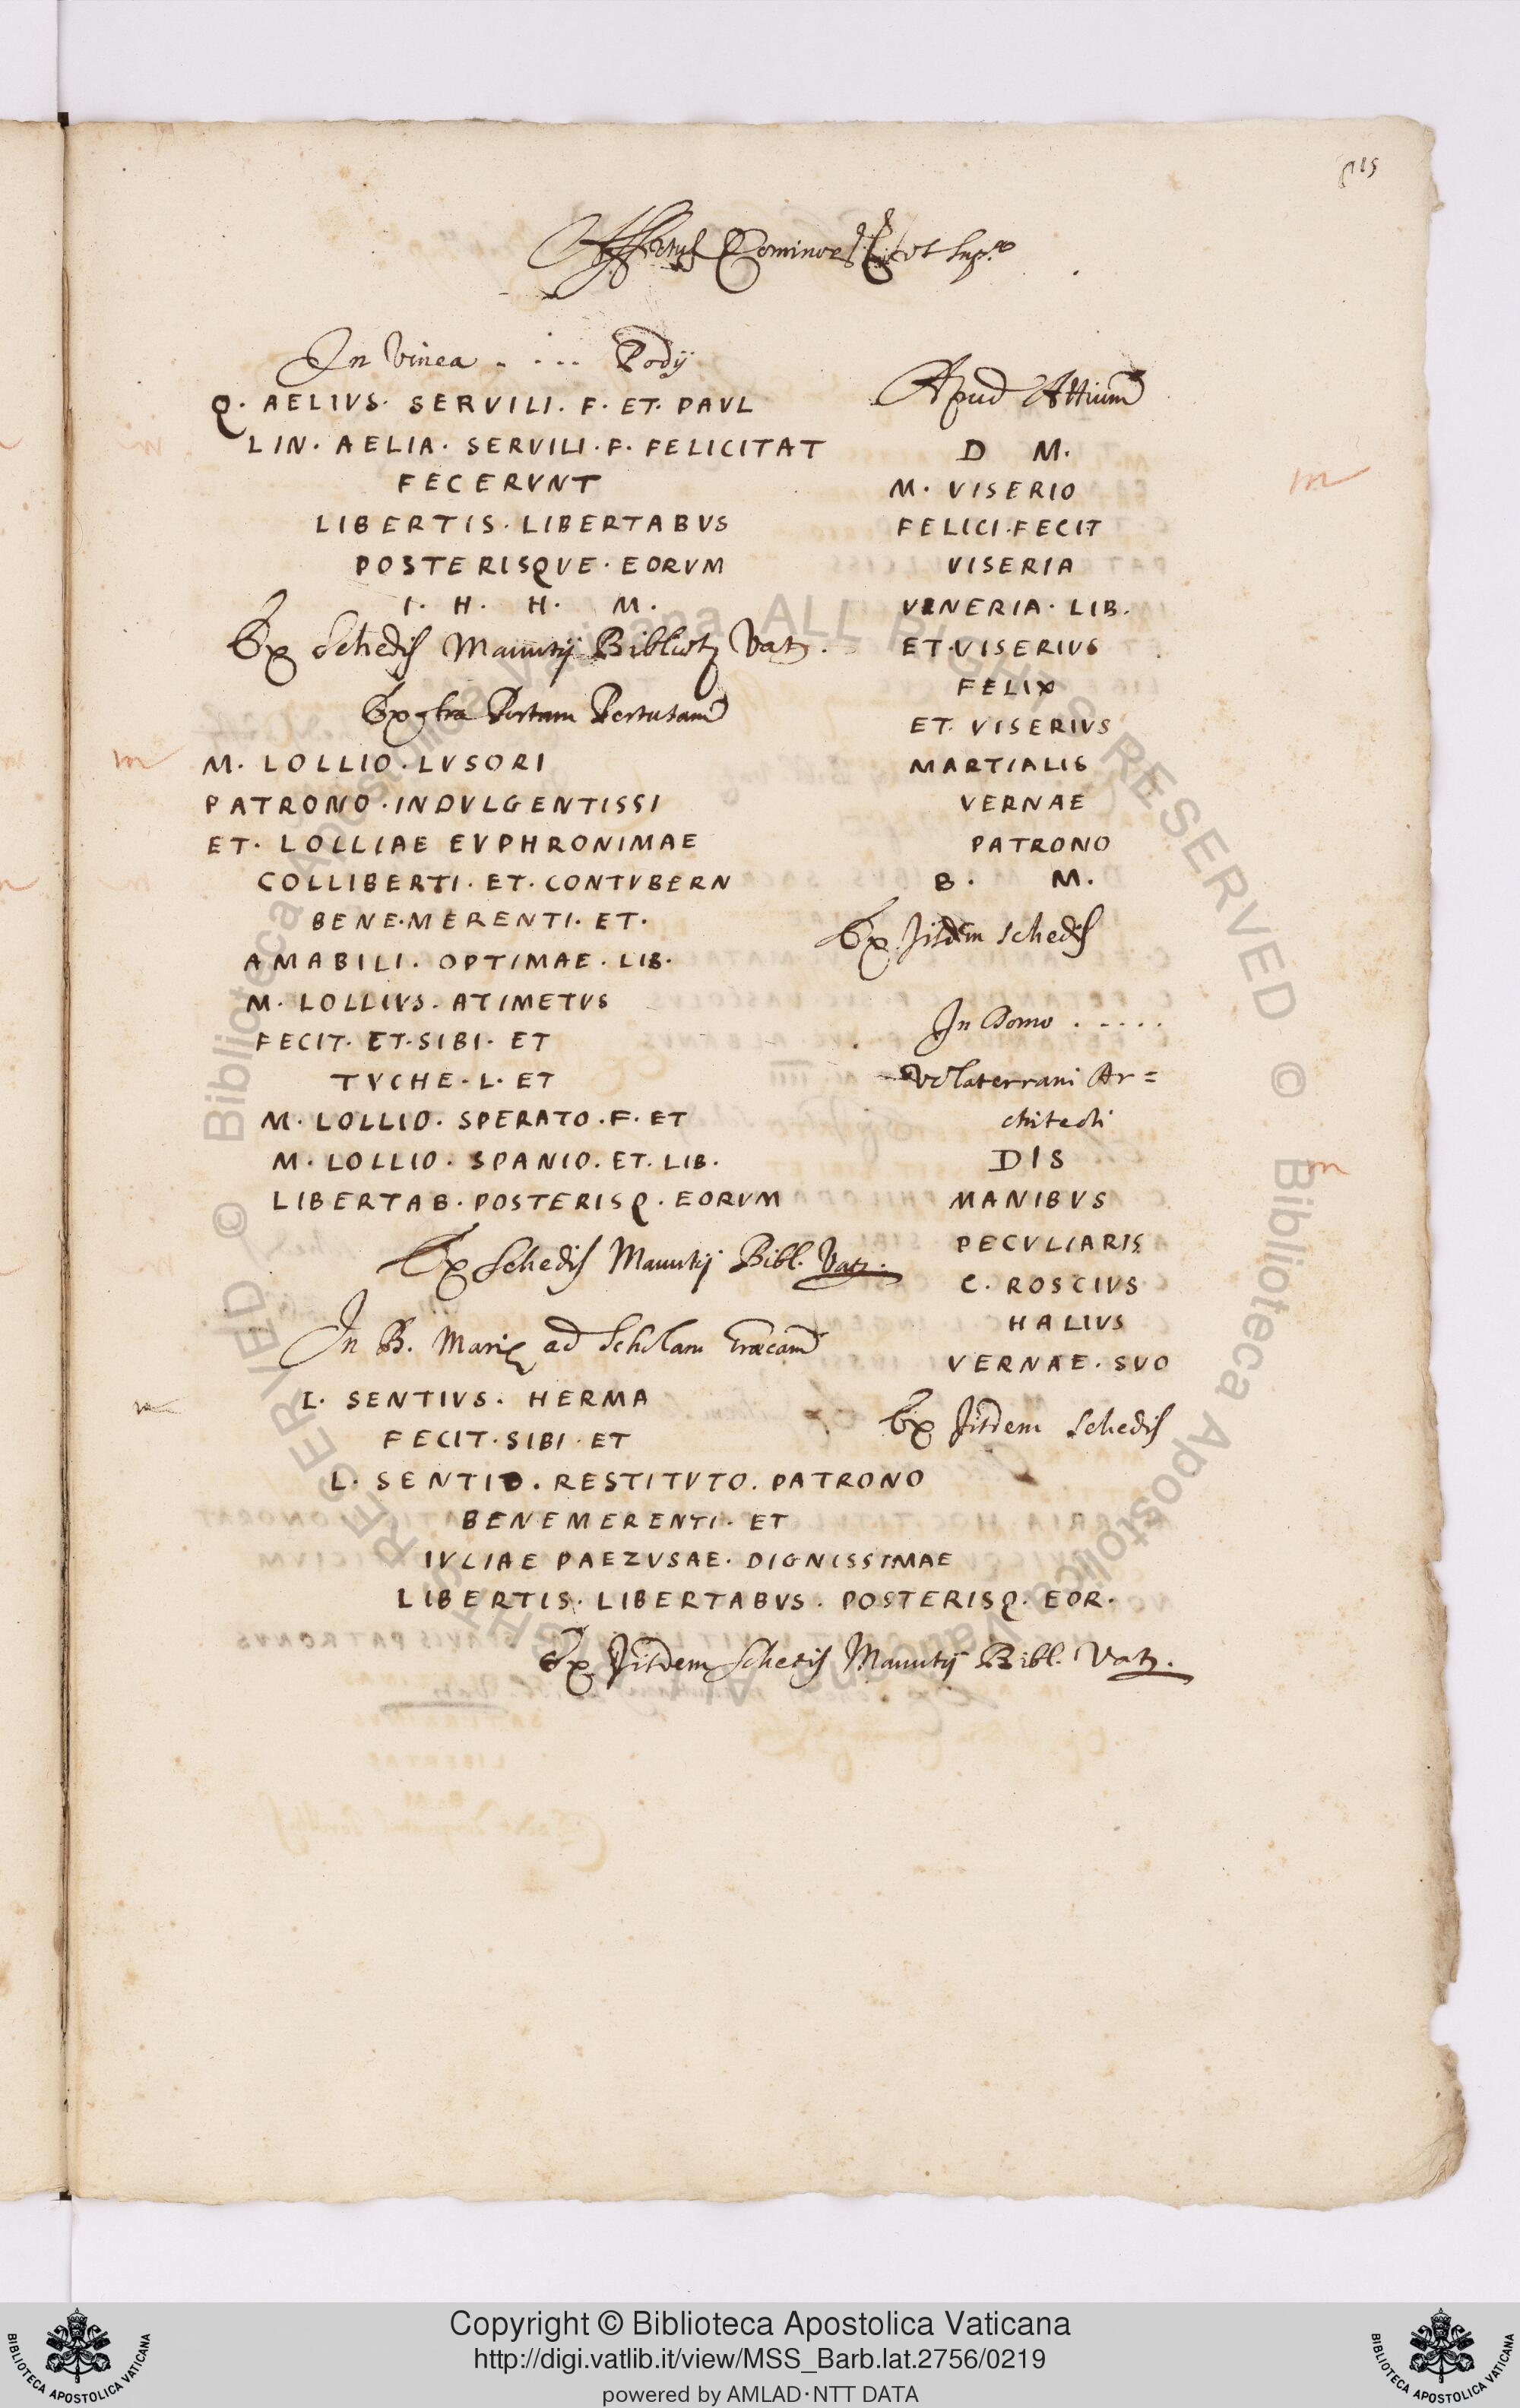 Affectus Dominor. et
In Vinea . . . . Podij
Q. AELIVS. SERVILI. F. ET. PAVL
LIN. AELIA. SERVILI. F. FELICITAT
FECERVNT
LIBERTIS. LIBERTABVS
POSTERISQVE. EORVM
I. H. H. M.
Ex Schedis Manutij Bibliot. Vat.
Extra Portam Pertusam
M. LOLLIO. LVSORI
PATRONO. INDVLGENTISSI
ET. LOLLIAE EVPHRONIMAE
COLLIBERTI. ET. CONTVBERN
BENE.MERENTI. ET.
AMABILI. OPTIMAE. LIB.
M. LOLLIVS. ATIMETVS
FECIT. ET. SIBI. ET
TVCHE. L. ET
M. LOLLIO. SPERATO. F. ET
M. LOLLIO. SPANIO. ET. LIB.
LIBERTAB. POSTERISQ. EORVM
Ex Schedis Manutij Bibl. Vat.
In B. Marię ad Scholam Græcam
L. SENTIVS. HERMA
FECIT. SIBI. ET
L. SENTIO. RESTITVTO. PATRONO
BENEMERENTI. ET
IVLIAE PAEZVSAE. DIGNISSIMAE
LIBERTIS. LIBERTABVS. POSTERISQ. EOR.
Ex Jisdem Schedis Manutij Bibl. Vat.
Apud Attium
D M.
M. VISERIO
FELICI. FECIT
VISERIA
VENERIA. LIB.
ET. VISERIVS
FELIX
ET. VISERIVS
MARTIALIS
VERNAE
PATRONO
B. M.
Ex Jisdem schedis
In Domo . . . . .
Volaterrani Ar=
chitecti
DIS
MANIBVS
PECVLIARIS
C. ROSCIVS
HALIVS
VERNAE. SVO
Ex Jisdem Schedis
Copyright © Biblioteca Apostolica Vaticana
http://digi.vatlib.it/view/MSS_Barb.lat.2756/0219
powered by AMLAD·NTT DATA